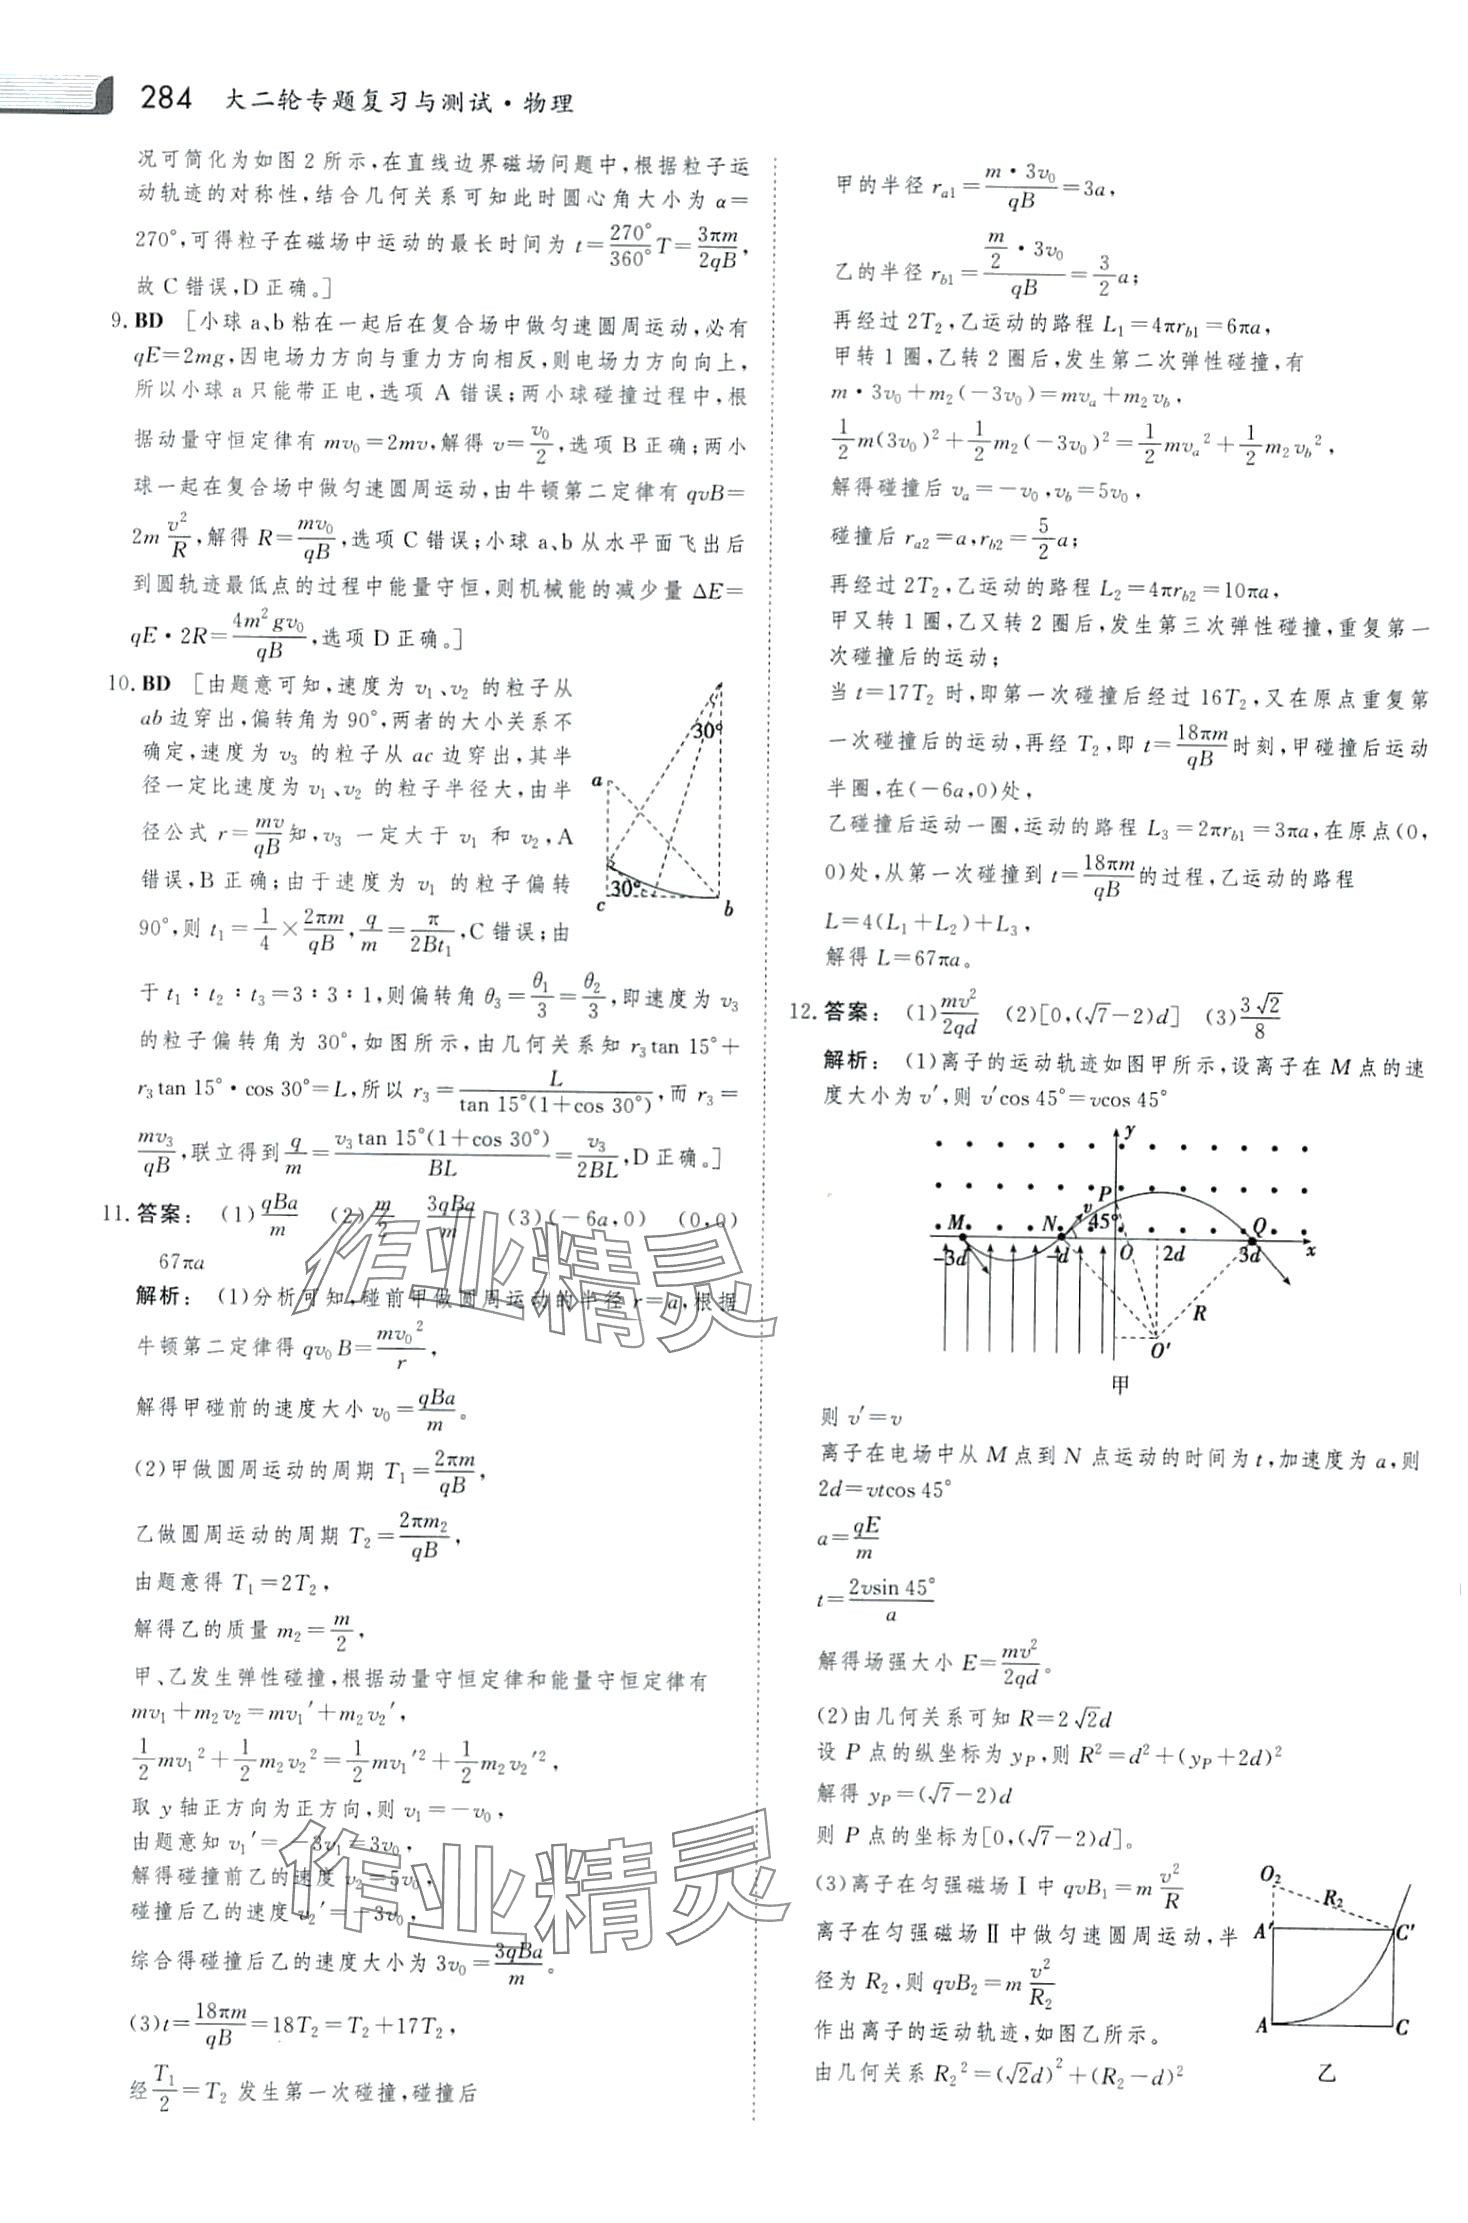 284 大二轮专题复习与测试·物理
况可简化为如图2所示,在直线边界磁场问题中,根据粒子运
动轨迹的对称性,结合几何关系可知此时圆心角大小为α=
270°,可得粒子在磁场中运动的最长时间为t=270°/360°T=3πm/2qB,
故C错误,D正确。]
9. BD [小球a、b粘在一起后在复合场中做匀速圆周运动,必有
qE=2mg,因电场力方向与重力方向相反,则电场力方向向上,
所以小球a只能带正电,选项A错误;两小球碰撞过程中,根
据动量守恒定律有mv₀=2mv,解得v=v₀/2,选项B正确;两小
球一起在复合场中做匀速圆周运动,由牛顿第二定律有qvB=
2m v²/R,解得R=mv₀/qB,选项C错误;小球a、b从水平面飞出后
到圆轨迹最低点的过程中能量守恒,则机械能的减少量ΔE=
qE·2R=4m²gv₀/qB,选项D正确。]
10. BD [由题意可知,速度为v₁、v₂的粒子从
ab边穿出,偏转角为90°,两者的大小关系不
确定,速度为v₃的粒子从ac边穿出,其半
径一定比速度为v₁、v₂的粒子半径大,由半
径公式r=mv/qB知,v₃一定大于v₁和v₂,A
错误,B正确;由于速度为v₁的粒子偏转
90°,则t₁=1/4×2πm/qB,q/m=π/2Bt₁,C错误;由
30°
a
30°
c
b
于t₁∶t₂∶t₃=3∶3∶1,则偏转角θ₃=θ₁/3=θ₂/3,即速度为v₃
的粒子偏转角为30°,如图所示,由几何关系知r₃tan 15°+
r₃tan 15°·cos 30°=L,所以r₃=L/tan 15°(1+cos 30°),而r₃=
mv₃/qB,联立得到q/m=v₃tan 15°(1+cos 30°)/BL=v₃/2BL,D正确。]
11. 答案: (1)qBa/m (2)m/2 3qBa/m (3)(-6a,0) (0,0)
67πa
解析: (1)分析可知,碰前甲做圆周运动的半径r=a,根据
牛顿第二定律得qv₀B=mv₀²/r,
解得甲碰前的速度大小v₀=qBa/m。
(2)甲做圆周运动的周期T₁=2πm/qB,
乙做圆周运动的周期T₂=2πm₂/qB,
由题意得T₁=2T₂,
解得乙的质量m₂=m/2,
甲、乙发生弹性碰撞,根据动量守恒定律和能量守恒定律有
mv₁+m₂v₂=mv₁′+m₂v₂′,
1/2mv₁²+1/2m₂v₂²=1/2mv₁′²+1/2m₂v₂′²,
取y轴正方向为正方向,则v₁=-v₀,
由题意知v₁′=-3v₁=3v₀,
解得碰撞前乙的速度v₂=5v₀,
碰撞后乙的速度v₂′=-3v₀,
综合得碰撞后乙的速度大小为3v₀=3qBa/m。
(3)t=18πm/qB=18T₂=T₂+17T₂,
经T₁/2=T₂发生第一次碰撞,碰撞后
甲的半径rₐ₁=m·3v₀/qB=3a,
乙的半径r_b1=(m/2·3v₀)/qB=3/2a;
再经过2T₂,乙运动的路程L₁=4πr_b1=6πa,
甲转1圈,乙转2圈后,发生第二次弹性碰撞,有
m·3v₀+m₂(-3v₀)=mvₐ+m₂v_b,
1/2m(3v₀)²+1/2m₂(-3v₀)²=1/2mvₐ²+1/2m₂v_b²,
解得碰撞后vₐ=-v₀,v_b=5v₀,
碰撞后rₐ₂=a,r_b2=5/2a;
再经过2T₂,乙运动的路程L₂=4πr_b2=10πa,
甲又转1圈,乙又转2圈后,发生第三次弹性碰撞,重复第一
次碰撞后的运动;
当t=17T₂时,即第一次碰撞后经过16T₂,又在原点重复第
一次碰撞后的运动,再经T₂,即t=18πm/qB时刻,甲碰撞后运动
半圈,在(-6a,0)处,
乙碰撞后运动一圈,运动的路程L₃=2πr_b1=3πa,在原点(0,
0)处,从第一次碰撞到t=18πm/qB的过程,乙运动的路程
L=4(L₁+L₂)+L₃,
解得L=67πa。
12. 答案: (1)mv²/2qd (2)[0,(√7-2)d] (3)3√2/8
解析: (1)离子的运动轨迹如图甲所示,设离子在M点的速
度大小为v′,则v′cos 45°=vcos 45°
y
P
v
M
N
45°
Q
-3d
-d
O
2d
3d
x
R
O′
甲
则v′=v
离子在电场中从M点到N点运动的时间为t,加速度为a,则
2d=vtcos 45°
a=qE/m
t=2vsin 45°/a
解得场强大小E=mv²/2qd。
(2)由几何关系可知R=2√2d
设P点的纵坐标为y_P,则R²=d²+(y_P+2d)²
解得y_P=(√7-2)d
则P点的坐标为[0,(√7-2)d]。
(3)离子在匀强磁场Ⅰ中qvB₁=m v²/R
离子在匀强磁场Ⅱ中做匀速圆周运动,半
径为R₂,则qvB₂=m v²/R₂
作出离子的运动轨迹,如图乙所示。
由几何关系R₂²=(√2d)²+(R₂-d)²
O₂
R₂
A′
C′
A
C
乙
作业精灵
作业精灵